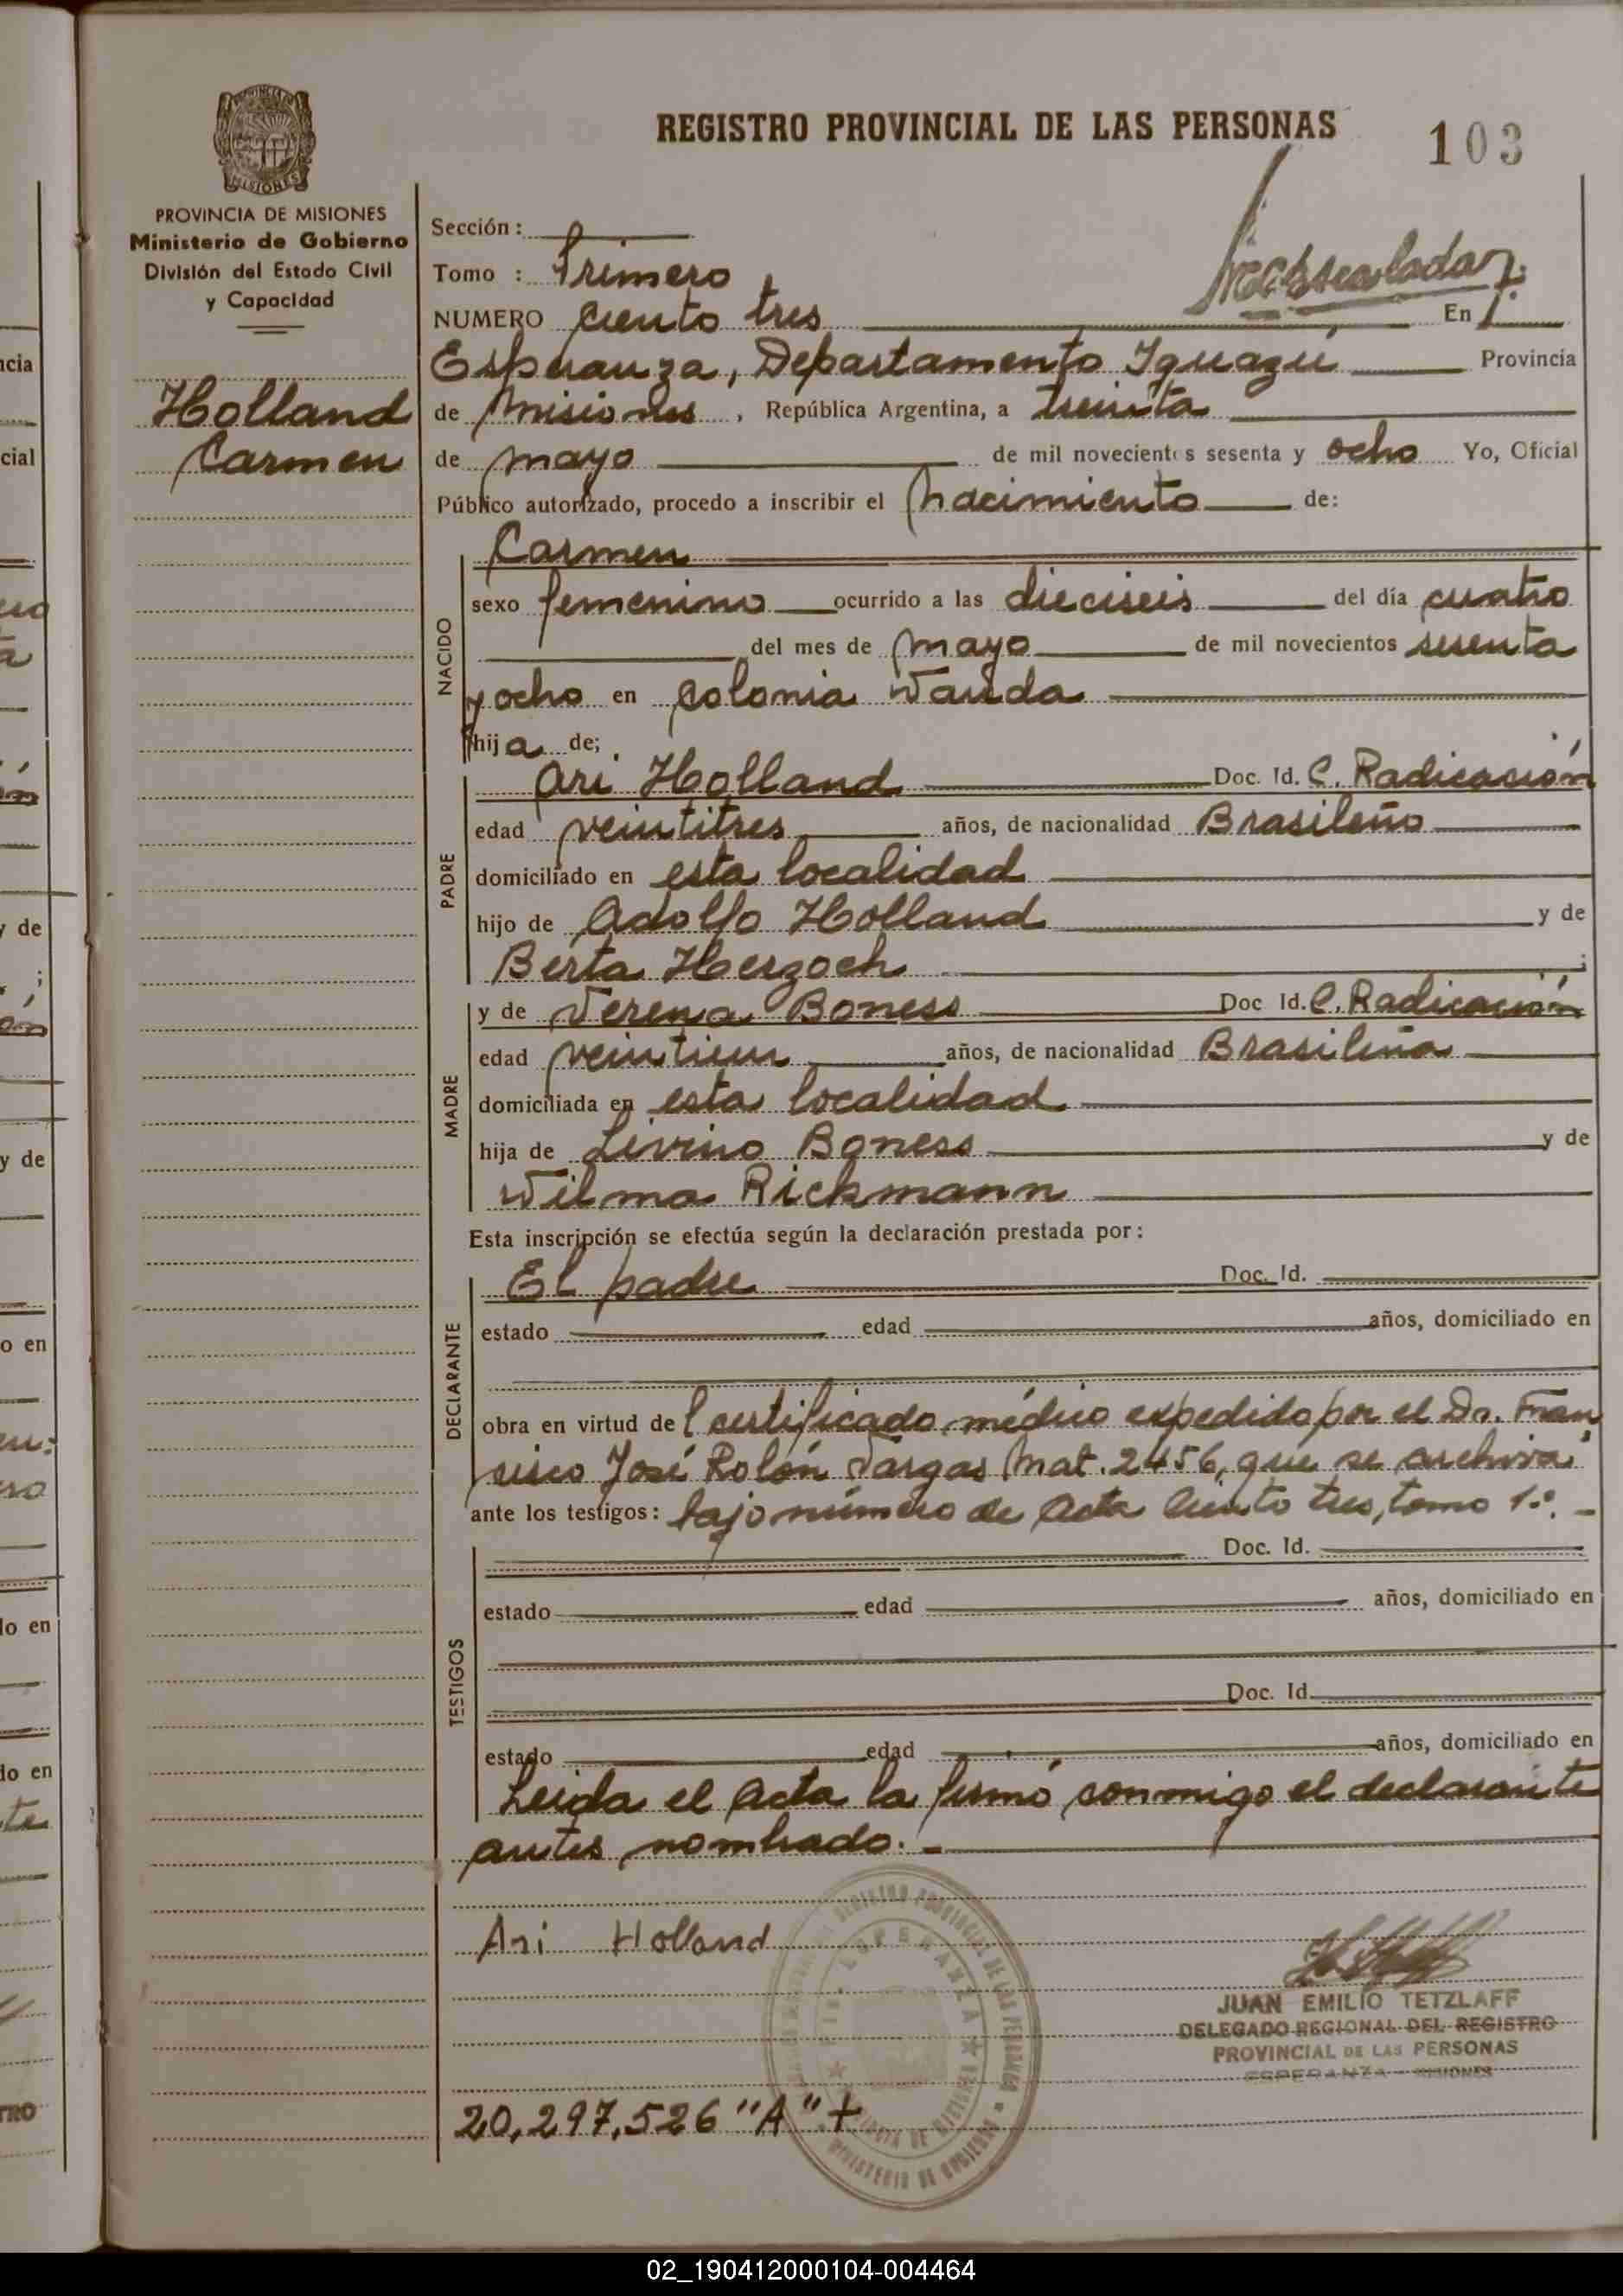 REGISTRO PROVINCIAL DE LAS PERSONAS
103
PROVINCIA DE MISIONES
Ministerio de Gobierno
División del Estado Civil
y Capacidad
Holland
Carmen
Sección :
Tomo : Primero
NUMERO ciento tres En
Esperanza, Departamento Iguazú Provincia
de Misiones , República Argentina, a treinta
de mayo de mil novecientos sesenta y ocho Yo, Oficial
Público autorizado, procedo a inscribir el nacimiento de:
NACIDO
Carmen
sexo femenino ocurrido a las dieciseis del día cuatro
del mes de mayo de mil novecientos sesenta
y ocho en colonia Wanda
hija de;
PADRE
Ari Holland Doc. Id. C. Radicación
edad veintitres años, de nacionalidad Brasileño
domiciliado en esta localidad
hijo de Adolfo Holland y de
Berta Herzoch
MADRE
y de Verena Boness Doc Id. C. Radicación
edad veintiun años, de nacionalidad Brasileña
domiciliada en esta localidad
hija de Livino Boness y de
Wilma Rickmann
Esta inscripción se efectúa según la declaración prestada por:
DECLARANTE
El padre Doc. Id.
estado edad años, domiciliado en
obra en virtud del certificado médico expedido por el Dr. Fran
cisco José Rolón Vargas Mat. 2456, que se archiva
ante los testigos: bajo número de Acta ciento tres, tomo 1º. -
TESTIGOS
Doc. Id.
estado edad años, domiciliado en
Doc. Id.
estado edad años, domiciliado en
Leida el Acta la firmó conmigo el declarante
antes nombrado. -
Ari Holland
JUAN EMILIO TETZLAFF
DELEGADO REGIONAL DEL REGISTRO
PROVINCIAL DE LAS PERSONAS
ESPERANZA - MISIONES
20,297,526 "A" +
02_190412000104-004464